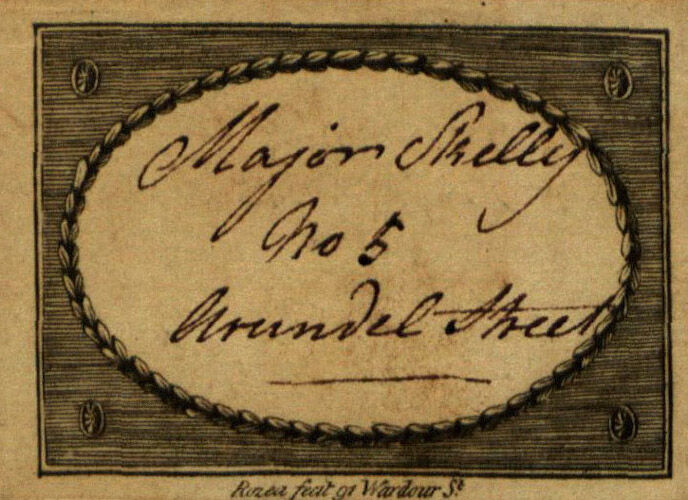 Major Skelly
No 5
Arundel Street
Rozea fecit 91 Wardour St.